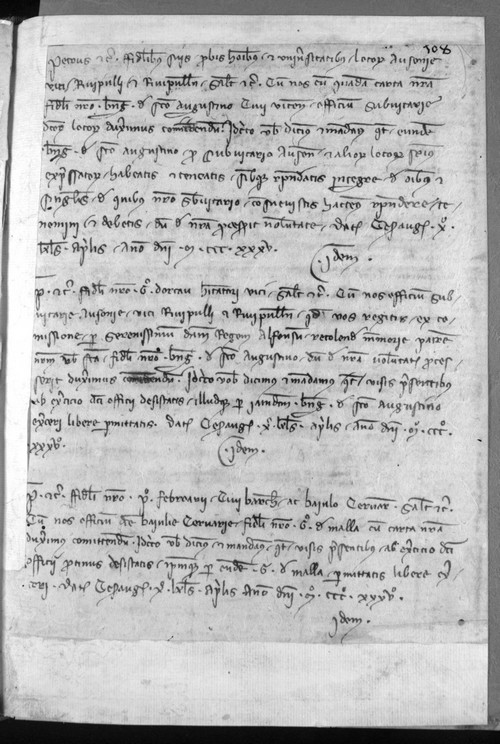 108
Petrus etc. fidelibus suis probis hominibus et universitatibus locorum Ausonie
vici, Rivipulli et Rivipullen, salutem etc. Cum nos cum quadam carta nostra
fideli nostro .bng. de sancto augustino Civi vicen, officium subvicarie
dictorum locorum duxerimus comittendum. Idcirco vobis dicimus et mandamus quatenus eundem
.bng. de sancto augustino pro Subvicario Auson. et aliorum locorum
expressatorum habeatis et teneatis, sibique respondeatis integre de omnibus et
singulis de quibus nostro subvicario consuevistis hactenus respondere, te-
nemini et debetis, dum de nostra processerit voluntate. Dat. Cesaraug. X.
kls. Aprilis, Anno dni. M. CCC. XXXV.
Idem.
P. etc. fideli nostro .G. dorcau habitatori vici, salutem etc. Cum nos officium sub-
vicarie Ausonie, vici Rivipulli et Rivipullen, quod vos regitis ex co-
missione per Serenissimum dnm Regem Alfonsum recolende memorie patrem
nostrum vobis facta, fideli nostro .bng. de sancto Augustino, dum de nostra voluntate proces-
serit duxerimus comittendum. Idcirco vobis dicimus et mandamus quatenus visis presentibus
ab exercicio dicti officii desistatis, illudque per iamdictum .bng. de sancto augustino
exerceri libere permittatis. Dat. Cesaraug. X. kls. Aprilis, Anno dni. M. CCC.
XXXV.
Idem.
P. etc. fideli nostro .P. februarii Civi barchn. ac baiulo Cervar. salutem etc.
Cum nos officium de baiulie Cervarie, fideli nostro .G. de malla cum carta nostra
duxerimus comittendum. Idcirco vobis dicimus et mandamus, quatenus visis presentibus, ab exercicio dicti
officii protinus desistatis, ipsumque per eundem .G. de malla, permittatis libere ex-
erceri. Dat. Cesaraug. X. kls. Aprilis Anno dni. M. CCC. XXXV.
Idem.